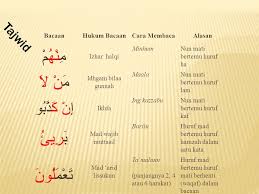 Tajwid
Bacaan Hukum Bacaan Cara Membaca Alasan
مِنْهُمْ Izhar halqi Minhum Nun mati
bertemu huruf
ha
مَنْ لاَ Idhgam bilaa
gunnah Maala Nun mati
bertemu huruf
lam
إِنْ كَذَّبُوْ Ikhfa Ing kazzabu Nun mati
bertemu huruf
kaf
بَرِيْئٌ Mad wajib
muttasil Bariin Huruf mad
bertemu huruf
hamzah dalam
satu kata
تَعْمَلُوْنَ Mad 'arid
lissukun Ta'maluun
(panjangnya 2, 4
atau 6 harakat) Huruf mad
bertemu huruf
mati berhenti
(waqaf) dalam
bacaan